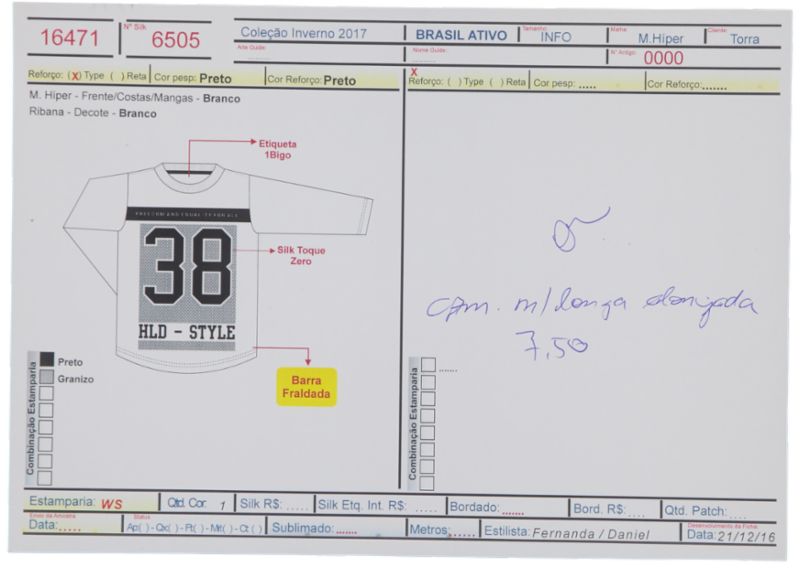 16471
Nº Silk
6505
Coleção Inverno 2017
BRASIL ATIVO
Tamanho
INFO
Malha
M.Hiper
Cliente
Torra
Arte Guide:
Nome Guide:
Nº Antigo:
0000
Reforço: (X) Type ( ) Reta
Cor pesp: Preto
Cor Reforço: Preto
X
Reforço: ( ) Type ( ) Reta
Cor pesp: .....
Cor Reforço:.......
M. Hiper - Frente/Costas/Mangas - Branco
Ribana - Decote - Branco
Etiqueta
1Bigo
38
HLD - STYLE
Silk Toque
Zero
Barra
Fraldada
Combinação Estamparia
Preto
Granizo
cam. m/longa alongada
7,50
Combinação Estamparia
.......
Estamparia: WS
Qtd. Cor: 1
Silk R$: .....
Silk Etq. Int. R$: .....
Bordado:.......
Bord. R$: ....
Qtd. Patch: ....
Envio da Amostra
Data:.....
Status
Ap( ) - Qx( ) - Pt( ) - Mt( ) - Ct ( )
Sublimado: .......
Metros:......
Estilista: Fernanda / Daniel
Desenvolvimento da Ficha:
Data: 21/12/16